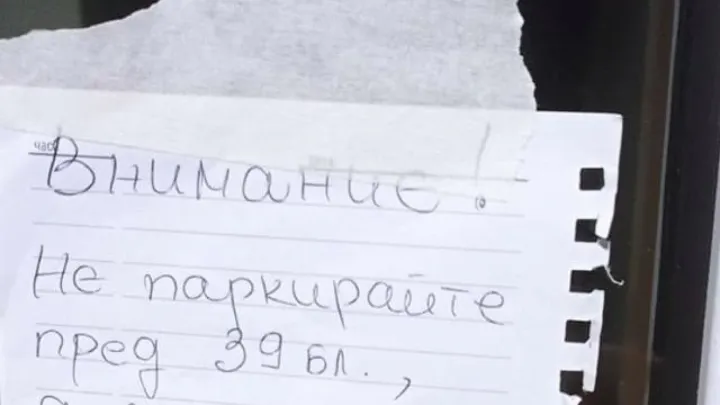 час
Внимание!
Не паркирайте
пред 39 бл.,